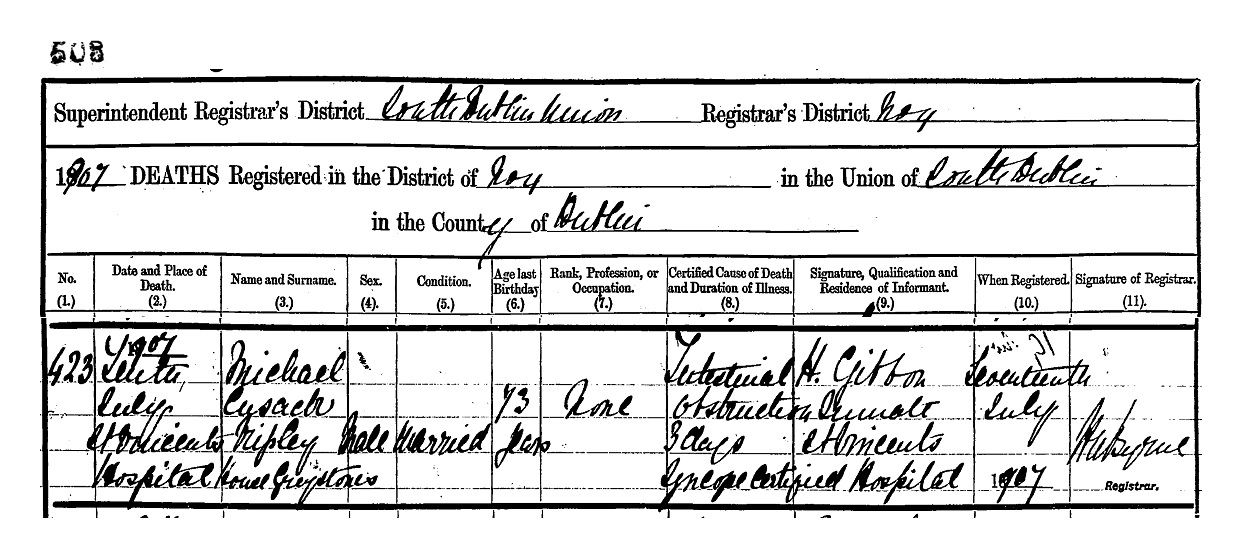 508
Superintendent Registrar's District South Dublin Union Registrar's District No 4
1907 DEATHS Registered in the District of No 4 in the Union of South Dublin
in the County of Dublin
No. (1.) Date and Place of Death. (2.) Name and Surname. (3.) Sex. (4). Condition. (5.) Age last Birthday (6.) Rank, Profession, or Occupation. (7.) Certified Cause of Death and Duration of Illness. (8.) Signature, Qualification and Residence of Informant. (9.) When Registered. (10.) Signature of Registrar. (11).
1907 31
423 Tenth Michael Intestinal H. Gibbon Seventeenth
July Cusack 73 None Obstruction Inmate July
St Vincents Ripley Male Married years 3 days St Vincents Byrne
Hospital House Greystones Syncope Certified Hospital 1907 Registrar.